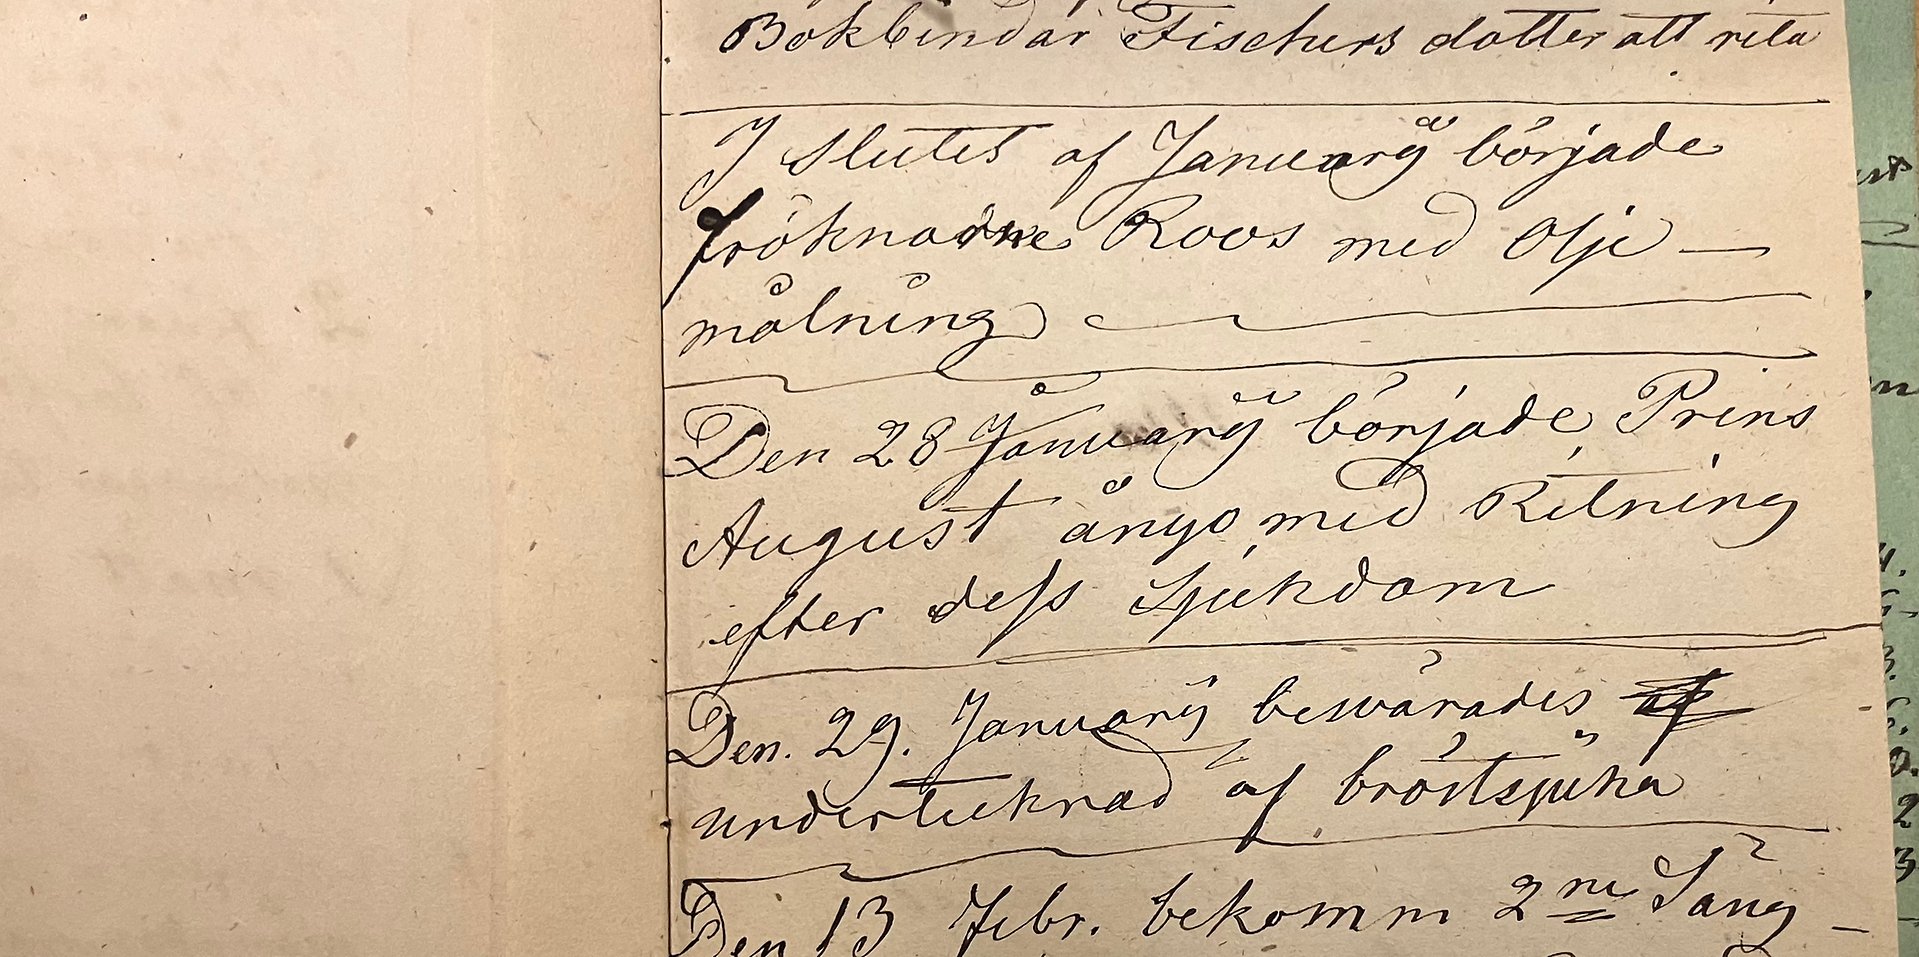 Bokbindar Fischers dotter att rita
I slutet af Januarÿ började
fröknarne Roos med Olje —
målning
Den 28 Januarÿ började Prins
August ånyo med Ritning
efter dess Sjukdom
Den. 29. Januarÿ beswärades
undertecknad af bröstsjuka
Den 13 Febr. bekomm 2ne Säng —